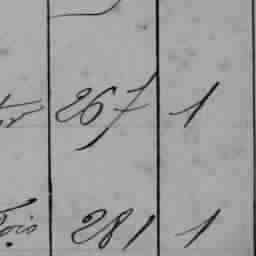 267 1
281 1